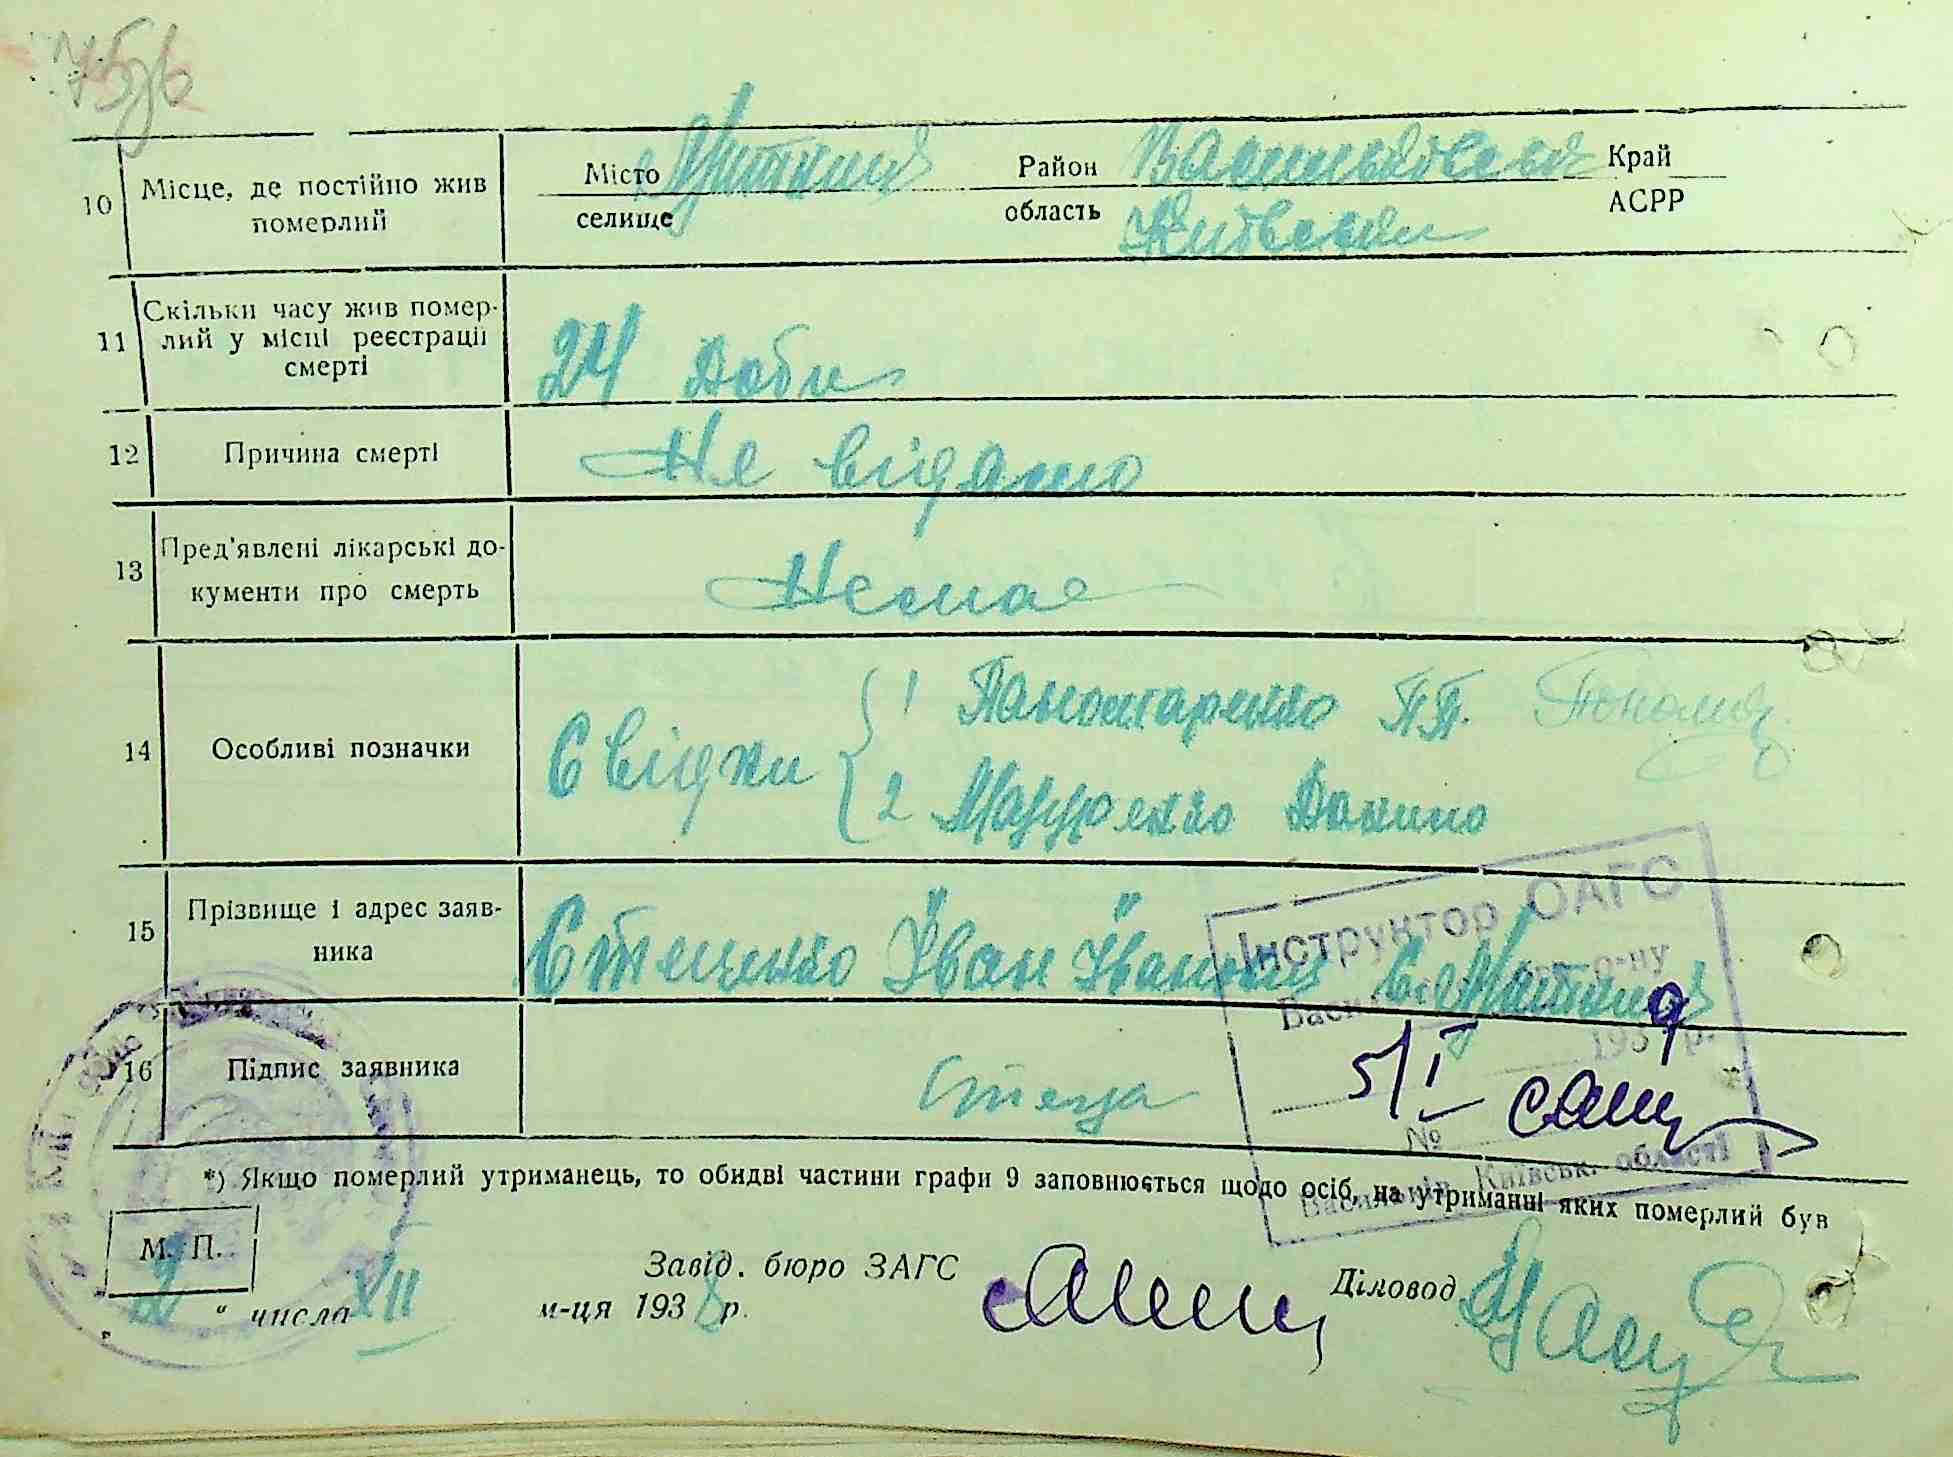 10 Місце, де постійно жив померлий Місто селище с. Митниця Район Васильківський Край
область Київська АСРР
11 Скільки часу жив померлий у місці реєстрації смерті 24 доби
12 Причина смерті Не відомо
13 Пред'явлені лікарські документи про смерть Немає
14 Особливі позначки Свідки 1 Паномаренко П П. Пономар
2 Мазуренко Данило
15 Прізвище і адрес заявника Стеценко Іван Іванович с. Митниця
16 Підпис заявника Стеце
Інструктор ОАГС
р-ну
193 9 р.
5/I
№
Васильків, Київськ. області
*) Якщо померлий утриманець, то обидві частини графи 9 заповнюється щодо осіб, на утриманні яких померлий був
М. П.
2 " числа XII м-ця 1938 р.
Завід. бюро ЗАГС
Діловод